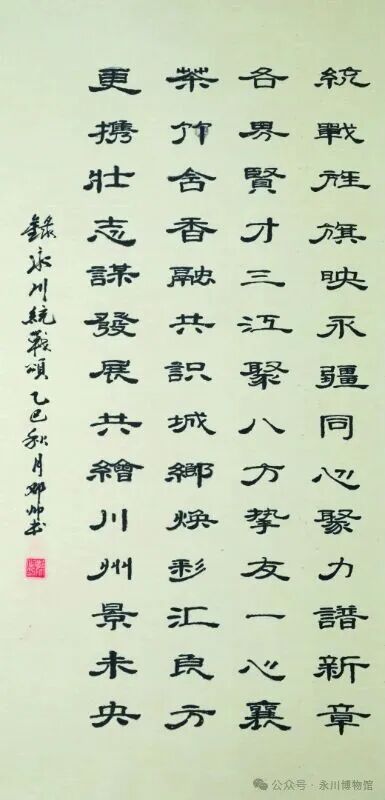 統戰旌旗映永疆同心聚力譜新章
各界賢才三江聚八方摯友一心襄
茶竹含香融共識城鄉焕彩汇良方
更携壯志謀發展共繪川州景未央
錄永川統戰頌乙巳秋月邓帅书
公众号·永川博物馆